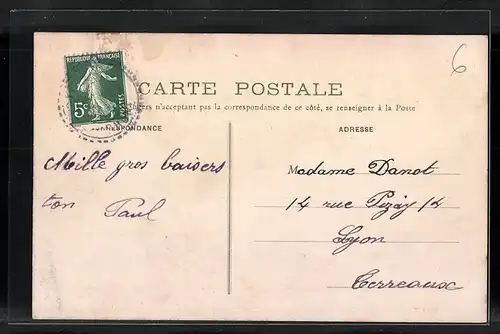 REPUBLIQUE FRANÇAISE
5c
POSTES
CARTE POSTALE
n'acceptant pas la correspondance de ce côté, se renseigner à la Poste
CORRESPONDANCE
ADRESSE
6
Mille gros baisers
ton Paul
Madame Danot
14 rue Pizay 14
Lyon
Terreaux